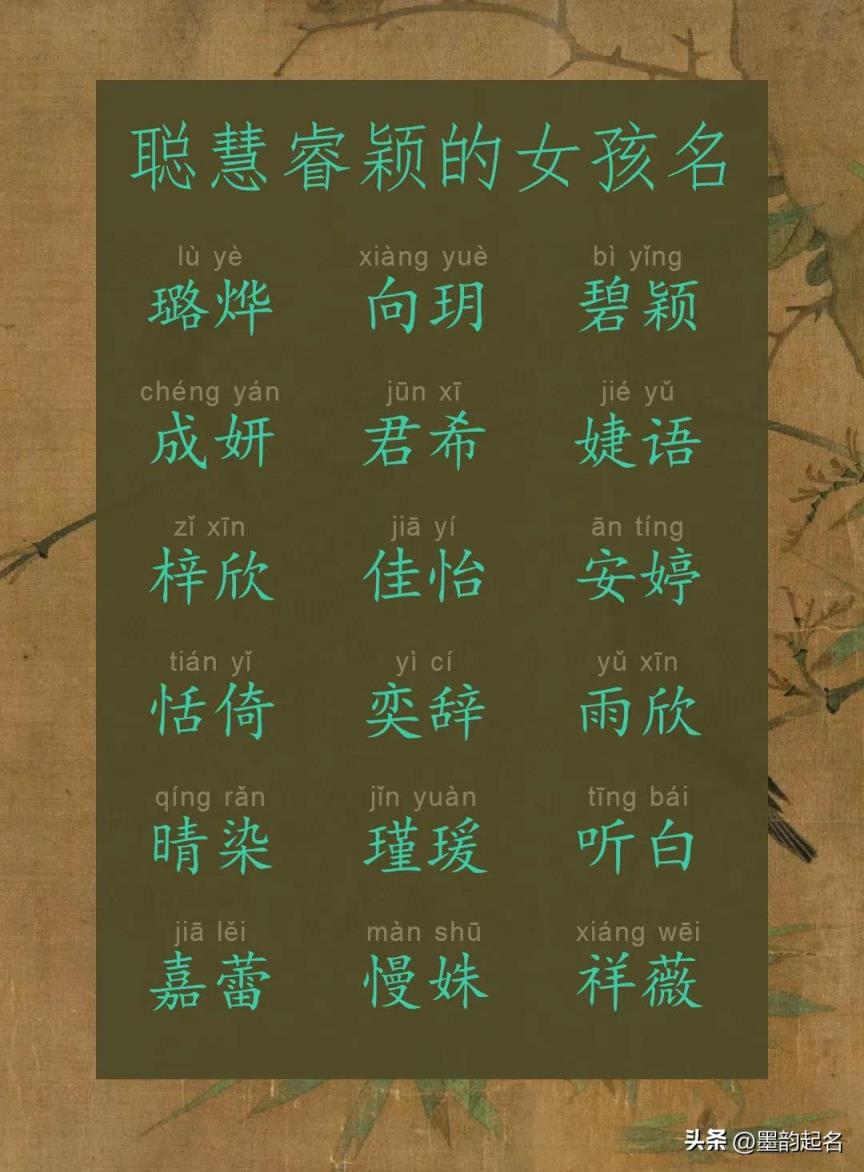 聪慧睿颖的女孩名
lù yè xiàng yuè bì yǐng
璐烨 向玥 碧颖
chéng yán jūn xī jié yǔ
成妍 君希 婕语
zǐ xīn jiā yí ān tíng
梓欣 佳怡 安婷
tián yǐ yì cí yǔ xīn
恬倚 奕辞 雨欣
qíng rǎn jǐn yuàn tīng bái
晴染 瑾瑗 听白
jiā lěi màn shū xiáng wēi
嘉蕾 慢姝 祥薇
头条 @墨韵起名